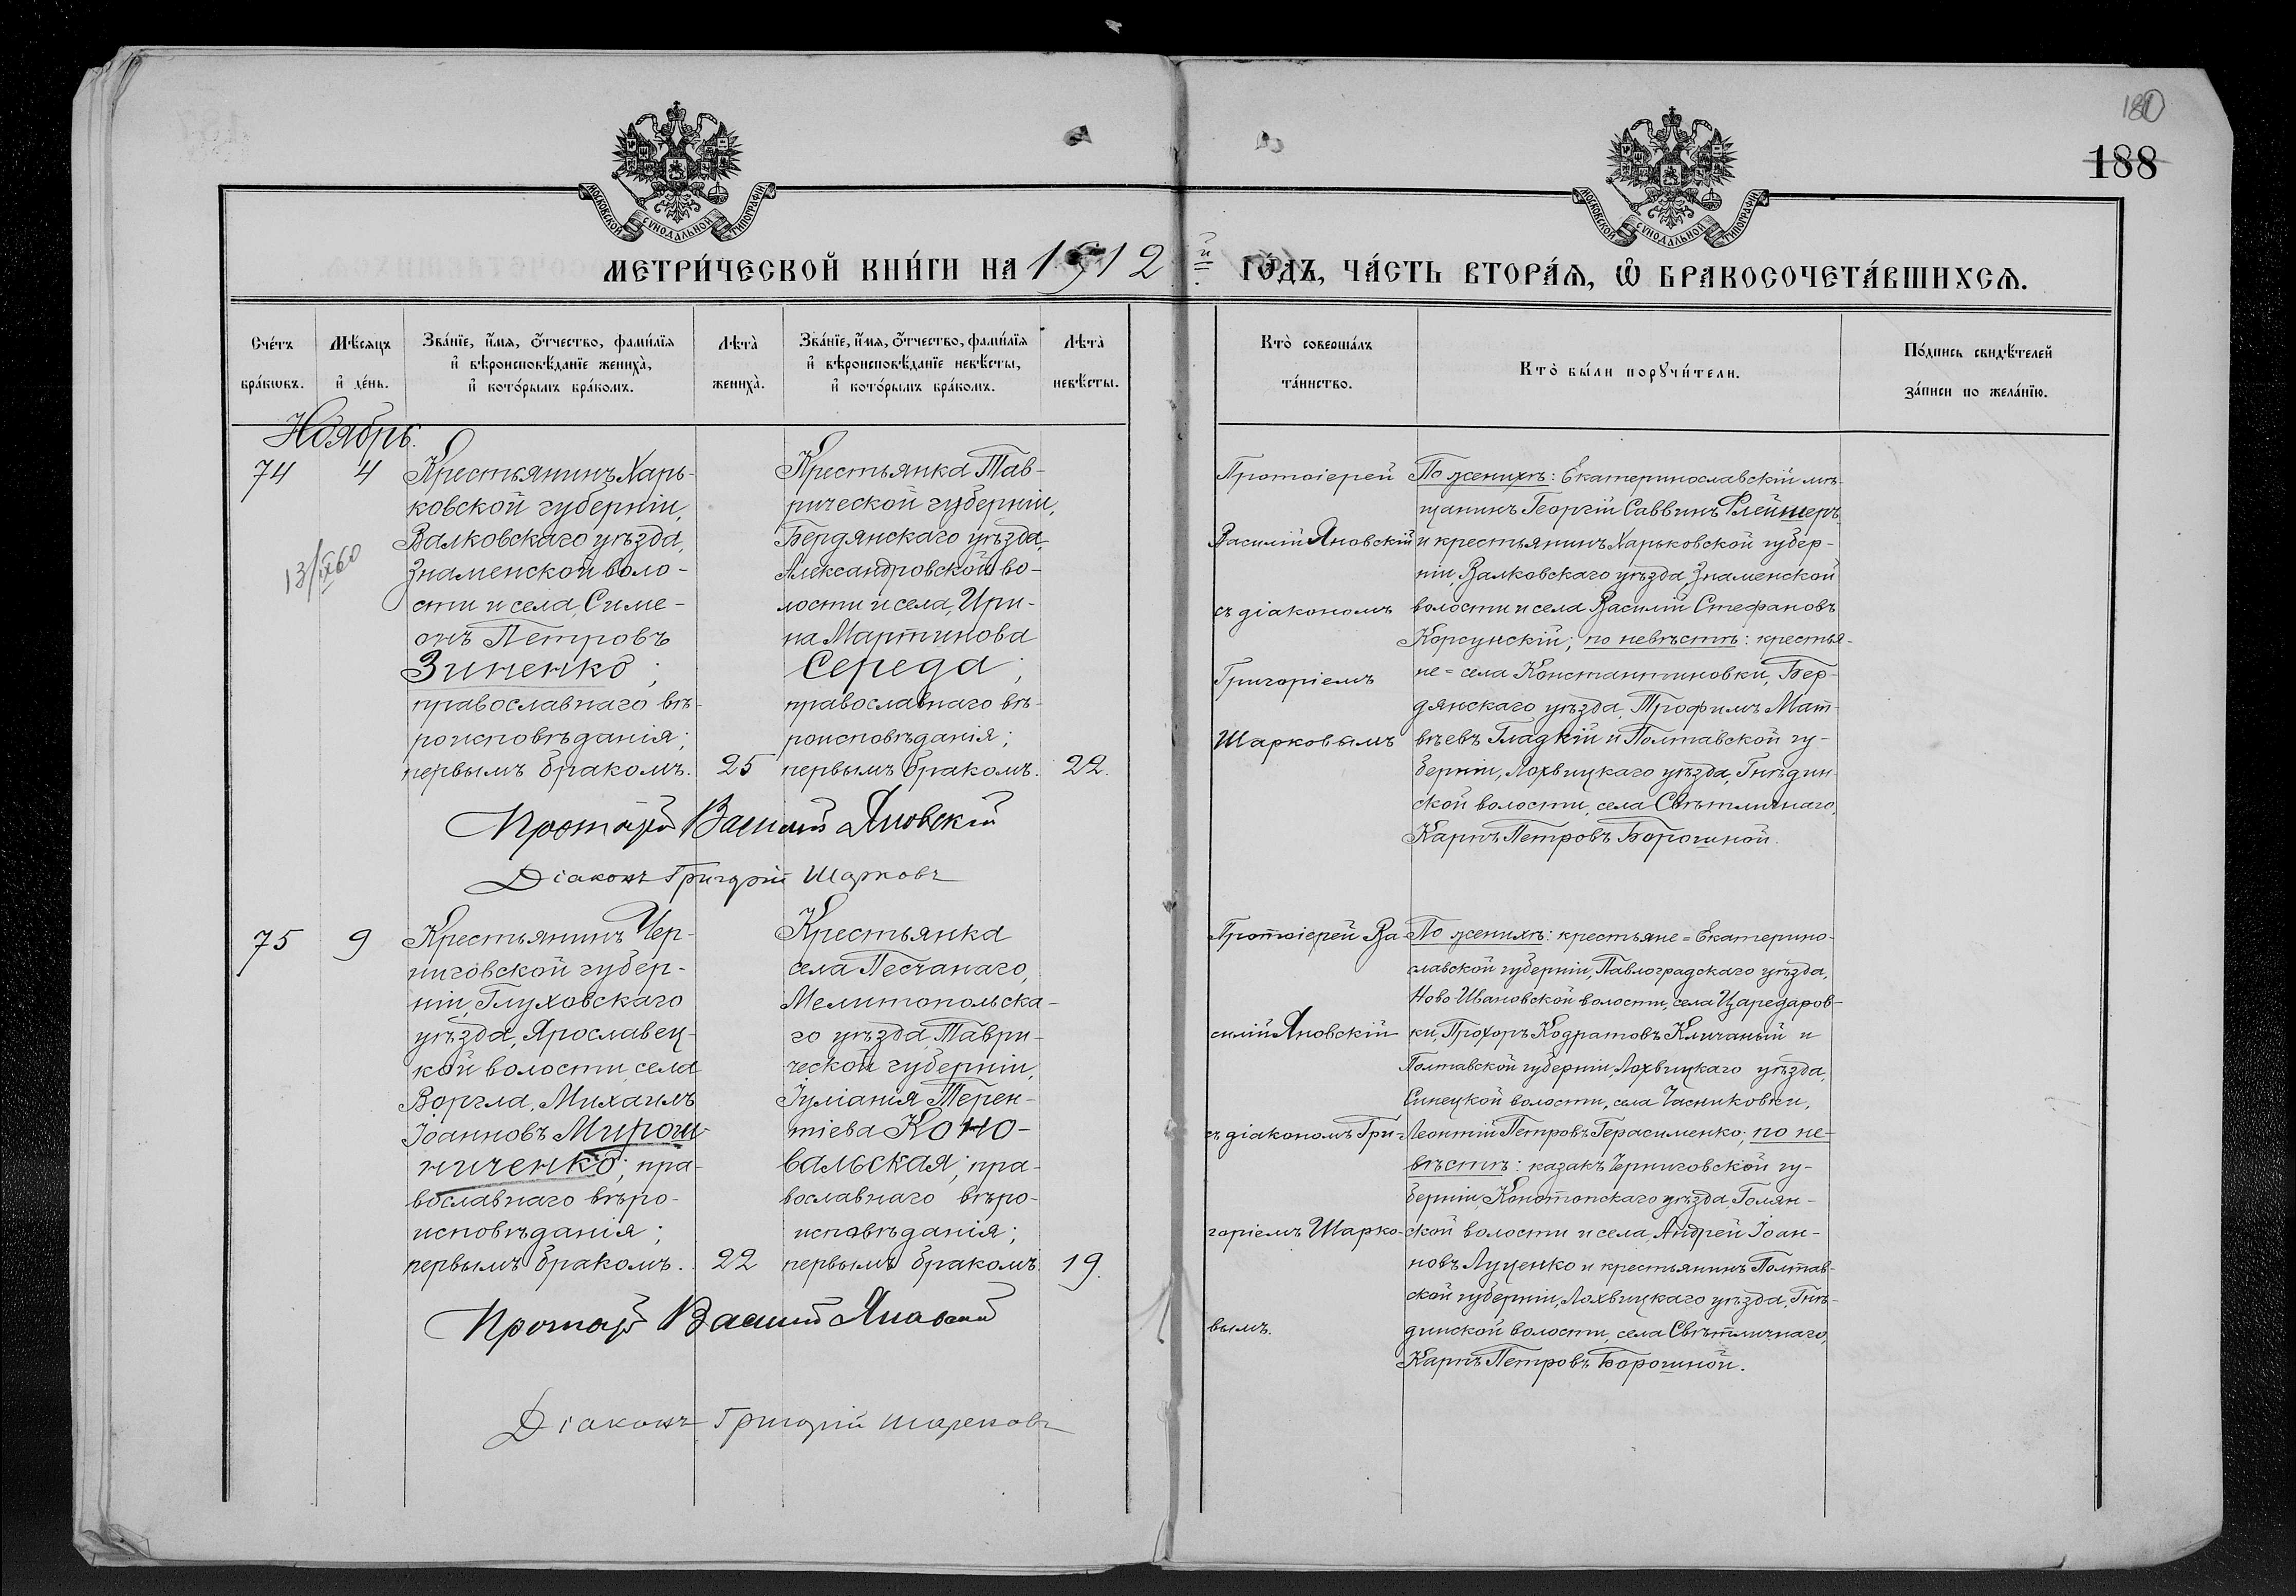 180
188
МОСКОВСКОЙ СѴНОДАЛЬНОЙ ТИПОГРАФІИ
МОСКОВСКОЙ СѴНОДАЛЬНОЙ ТИПОГРАФІИ
МЕТРИ́ЧЕСКОЙ КНИ́ГИ НА 1912 й ГО́ДЪ, ЧА́СТЬ ВТОРА́Ѧ, Ѽ БРАКОСОЧЕТА́ВШИХСѦ.
Сче́тъ
бра́кѡвъ.
Мѣ́сяцъ
и҆ де́нь.
Зва́нїе, и҆́мя, ѻ҆́тчество, фами́лїя
и҆ вѣроисповѣ́данїе жениха̀,
и҆ кото́рымъ бра́комъ.
Лѣта̀
жениха̀.
Зва́нїе, и҆́мя, ѻ҆́тчество, фами́лїя
и҆ вѣроисповѣ́данїе невѣ́сты,
и҆ кото́рымъ бра́комъ.
Лѣта̀
невѣ́сты.
Кто̀ соверша́лъ
та́инство.
Кто̀ бы́ли порꙋчи́тели.
По́дпись свидѣ́телей
за́писи по жела́нїю.
Ноябрь.
74
4
13/IX60
Крестьянинъ Харь-
ковской губерніи,
Валковскаго уѣзда,
Знаменской воло-
сти и села, Симе-
онъ Петровъ
Зиненко;
православнаго вѣ-
роисповѣданія;
первымъ бракомъ.
25
Крестьянка Тав-
рической губерніи,
Бердянскаго уѣзда,
Александровской во-
лости и села, Ири-
на Мартинова
Середа;
православнаго вѣ-
роисповѣданія;
первымъ бракомъ.
22.
Протоіерей
Василій Яновскій
съ діакономъ
Григоріемъ
Шарковымъ
По женихѣ: Екатеринославскій мѣ-
щанинъ Георгій Саввинъ Флейшеръ
и крестьянинъ Харьковской губер-
ніи, Валковскаго уѣзда, Знаменской
волости и села Василій Стефановъ
Корсунскій; по невѣстѣ: крестья-
не = села Константиновки, Бер-
дянскаго уѣзда, Трофимъ Мат-
вѣевъ Гладкій и Полтавской гу-
берніи, Лохвицкаго уѣзда, Гнѣдин-
ской волости, села Свѣтличнаго,
Карпъ Петровъ Борошной.
Протоіерей Василій Яновскій
Діаконъ Григорій Шарковъ
75
9
Крестьянинъ Чер-
ниговской губер-
ніи, Глуховскаго
уѣзда, Ярославец-
кой волости, села
Воргла, Михаилъ
Іоанновъ Мирош-
ниченко; пра-
вославнаго вѣро-
исповѣданія;
первымъ бракомъ.
22
Крестьянка
села Песчанаго,
Мелитопольска-
го уѣзда, Таври-
ческой губерніи,
Іуліанія Терен-
тіева Коно-
вальская; пра-
вославнаго вѣро-
исповѣданія;
первымъ бракомъ.
19.
Протоіерей Ва-
силій Яновскій
съ діакономъ Гри-
горіемъ Шарко-
вымъ.
По женихѣ: крестьяне = Екатерино-
славской губерніи, Павлоградскаго уѣзда,
Ново Ивановской волости, села Царедаров-
ки, Прохоръ Кодратовъ Кличаный и
Полтавской губерніи, Лохвицкаго уѣзда,
Синецкой волости, села Часниковки,
Леонтій Петровъ Герасименко; по не-
вѣстѣ: казакъ Черниговской гу-
берніи, Конотопскаго уѣзда, Голян-
ской волости и села, Андрей Іоан-
новъ Луценко и крестьянинъ Полтав-
ской губерніи, Лохвицкаго уѣзда, Гнѣ-
динской волости, села Свѣтличнаго,
Карпъ Петровъ Борошной.
Протоіерей Василій Яновскій
Діаконъ Григорій Шарковъ